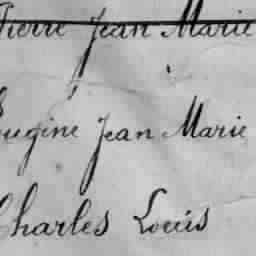 Pierre Jean Marie
Eugine Jean Marie
Charles Louis